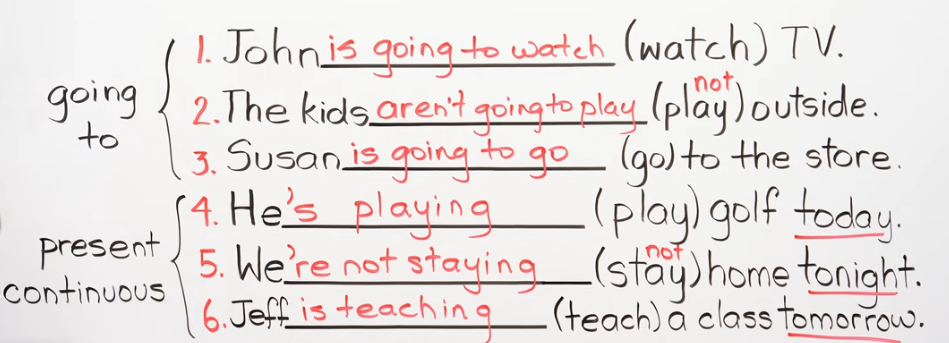 going to
1. John is going to watch (watch) TV.
2. The kids aren't going to play (not play) outside.
3. Susan is going to go (go) to the store.
present continuous
4. He's playing (play) golf today.
5. We're not staying (not stay) home tonight.
6. Jeff is teaching (teach) a class tomorrow.